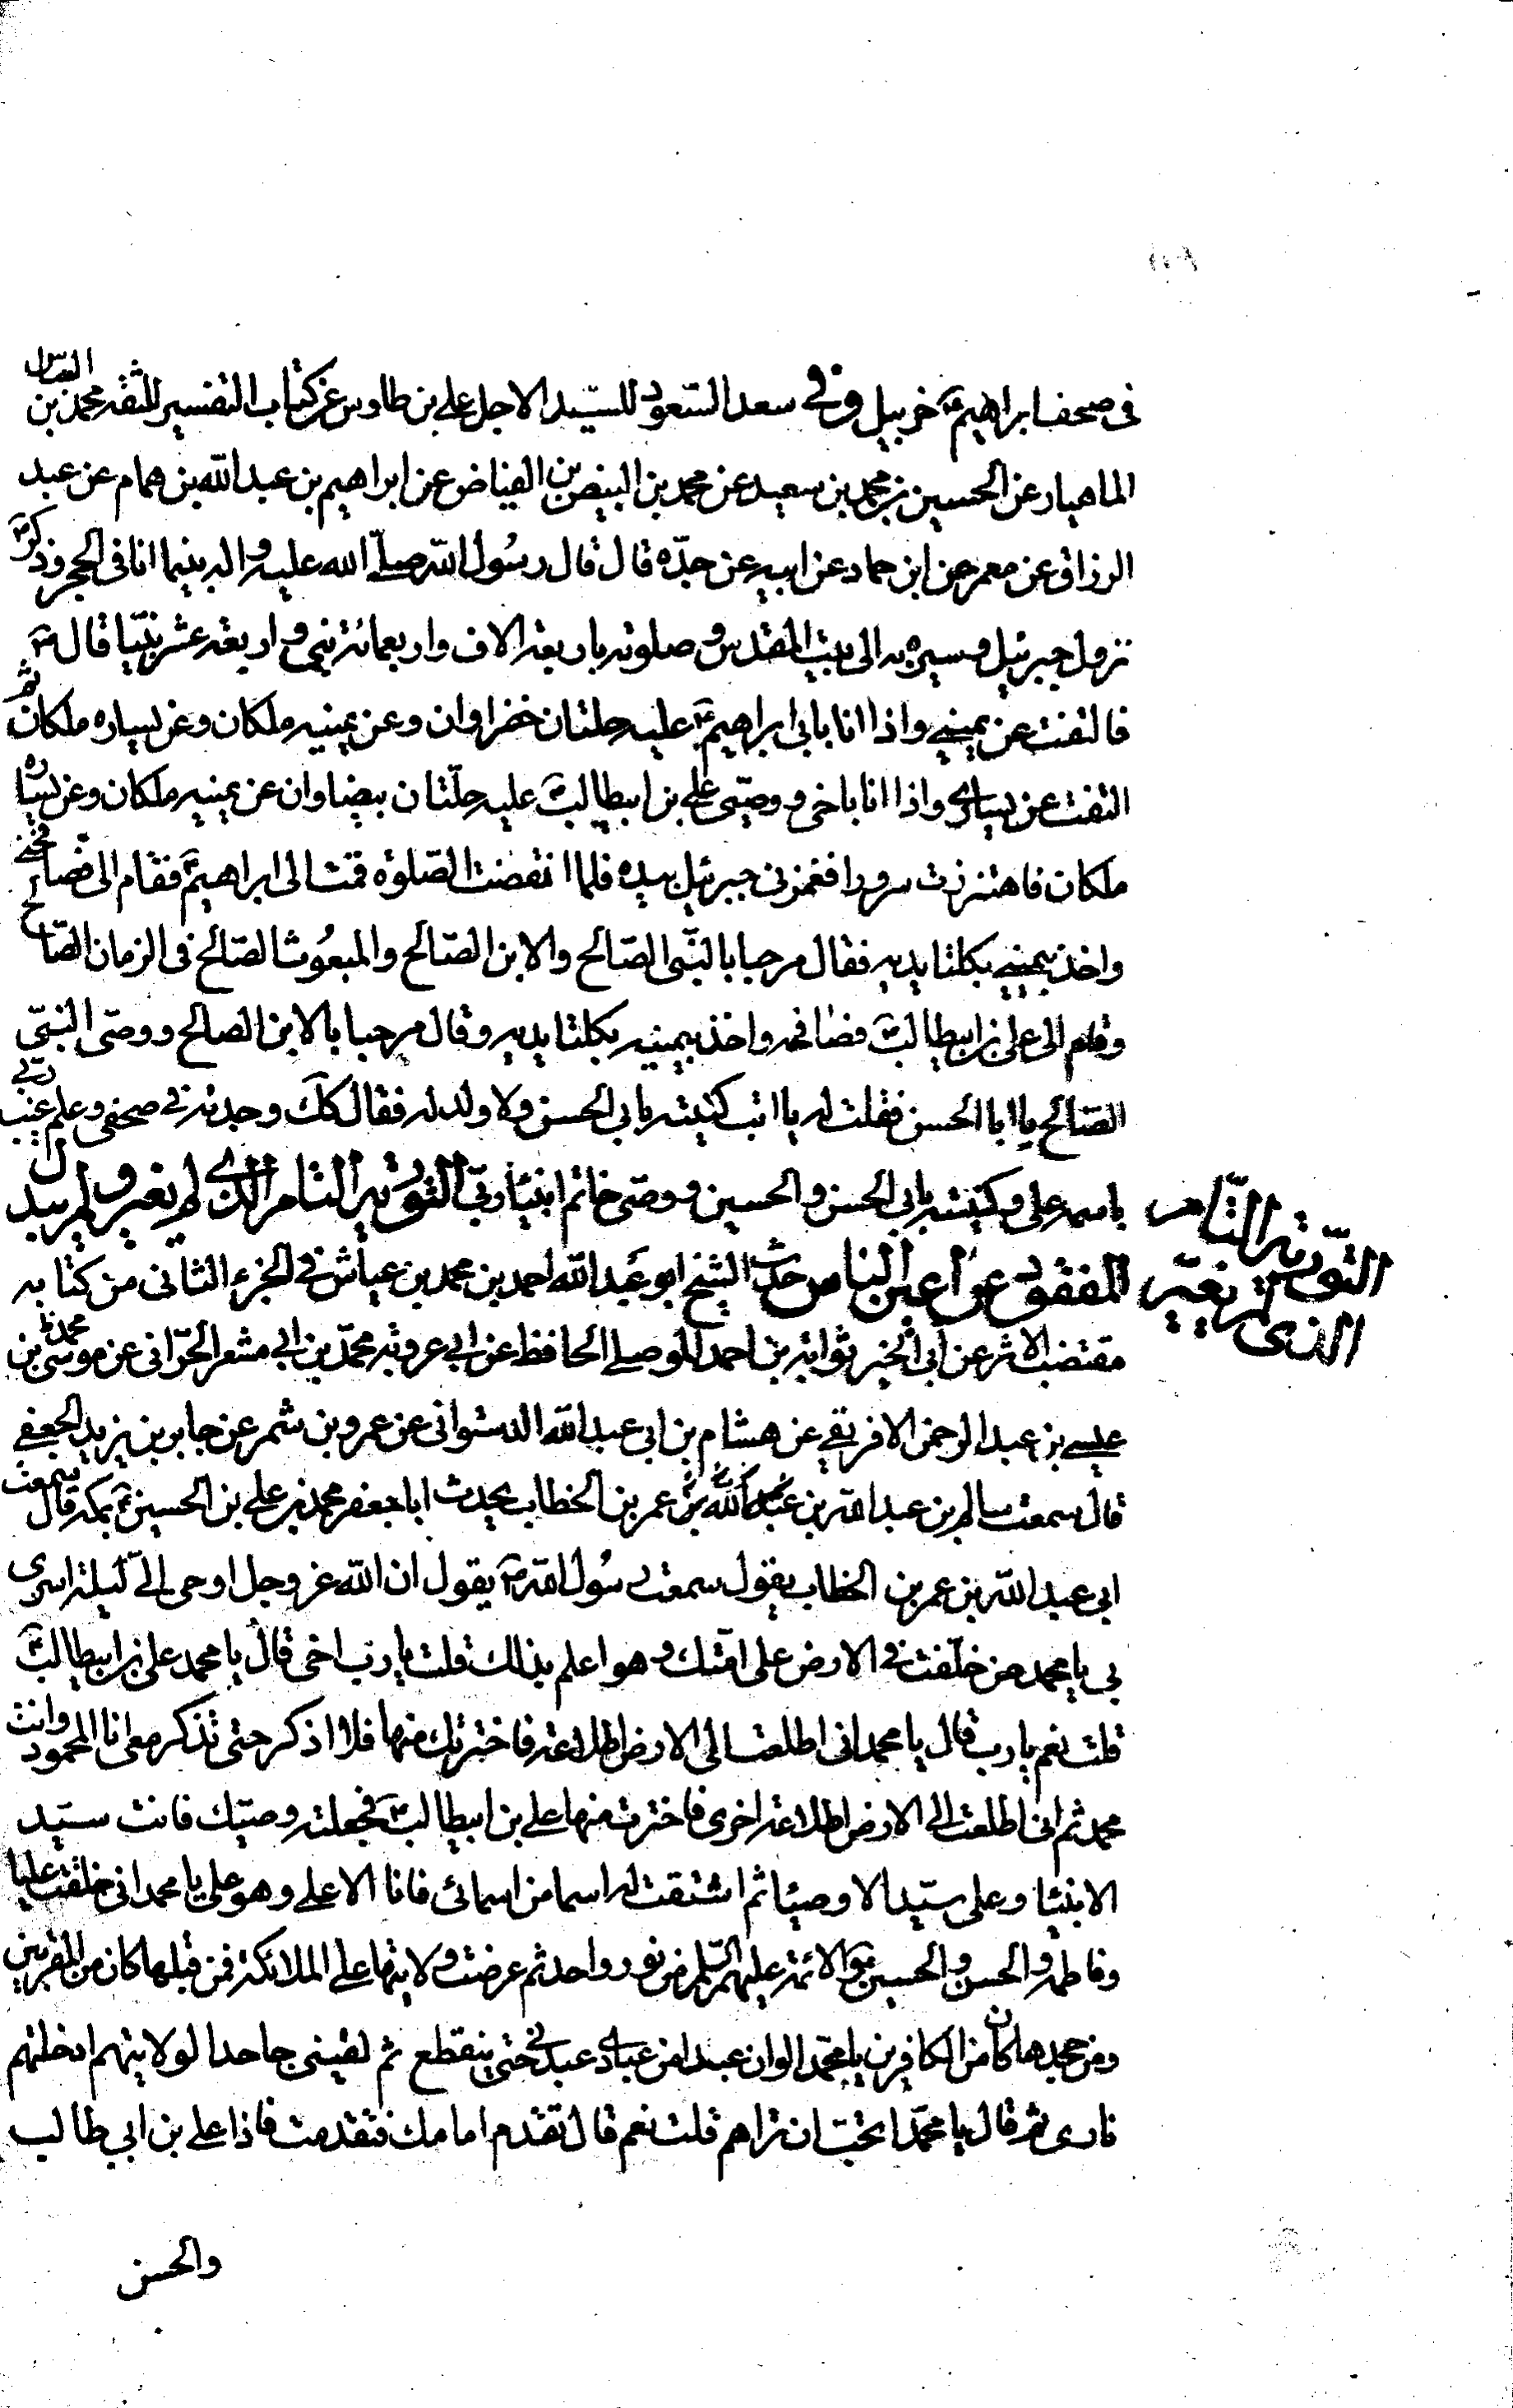 فى صحف ابراهيم ع خربيل وفى سعد السعود للسيد الاجل على بن طاوس عن كتاب التفسير للثقة محمد بن العباس
الماهيار عن الحسين بن محمد بن سعيد عن محمد بن البيض بن الفياض عن ابراهيم بن عبد الله بن همام عن عبد
الرزاق عن معمر عن ابن حماد عن ابيه عن جدّه قال قال رسُول الله صلّى الله عليه واله بينما انا فى الحجر وذكر ص
نزول جبرئيل ومسيره به الى بيت المقدس وصلوته باربعة الاف واربعمائة نبى واربعة عشر نبيّا قال ص
فالتفت عن يمينى واذا انا بابى ابراهيم ع عليه حلتان خضراوان وعن يمينه ملكان وعن يساره ملكان ثم
التفت عن يسارى واذا انا باخى ووصيّى على بن ابيطالب ع عليه حلّتان بيضاوان عن يمينه ملكان وعن يساره
ملكان فاهتززت سرورا فغمزنى جبرئيل بيده فلما انقضت الصّلوة قمت الى ابراهيم ع فقام الى فصافحنى
واخذ بيمينى بكلتا يديه فقال مرحبا بالنّبى الصّالح والابن الصّالح والمبعُوث الصّالح فى الزمان الصّالح
وقام الى على بن ابيطالب ع فصافحه واخذ بيمينه بكلتا يديه وقال مرحبا بالابن الصالح ووصى النبىّ
الصّالح يا ابا الحسن فقلت له يا ابت كنيته بابى الحسن ولا ولد له فقال كك وجدته فى صحفى وعلم غيب ربّى
باسمه على وكنيته بابى الحسن والحسين ووصى خاتم انبياء ربّى التورية التامر الذى لم يغير ولم يبدل
التّورية التّامر
الذى لم يغيّر
المفقود عن اعين الناس حدّث الشيخ ابو عبد الله احمد بن محمد بن عياش فى الجزء الثانى من كتابه
مقتضب الاثر عن ابى الخير ثوابة بن احمد الموصلى الحافظ عن ابى عروبة محمّد بن ابى مشعر الحرّانى عن موسى بن
عيسى بن عبد الرحمن الافريقى عن هشام بن ابى عبد الله الدستوانى عن عمرو بن شمر عن جابر بن يزيد الجعفى
قال سمعت سالم بن عبد الله بن عمر بن الخطاب يحدث ابا جعفر محمد بن على بن الحسين ع بمكة قال سمعت
ابى عبد الله بن عمر بن الخطاب يقول سمعت رسُول الله ص يقول ان الله عز وجل اوحى الىّ ليلة اسرى
بى يا محمد من خلّفت فى الارض على امّتك وهو اعلم بذلك قلت يا رب اخى قال يا محمد على بن ابيطالب ع
قلت نعم يا رب قال يا محمد انى اطلعت الى الارض اطلاعة فاخترتك منها فلا اذكر حتى تذكر معى انا المحمود وانت
محمد ثم انى اطلعت الى الارض اطلاعة اخرى فاخترت منها على بن ابيطالب ع فجعلته وصيّك فانت سيّد
الانبياء وعلى سيّد الاوصياء ثم اشتقت له اسما من اسمائى فانا الاعلى وهو على يا محمد انى خلقت عليا
وفاطمة والحسن والحسين والائمة عليهم السّلم من نور واحد ثم عرضت ولايتها على الملائكة فمن قبلها كان من المقربين
ومن جحدها كان من الكافرين يا محمّد لو ان عبدا من عبادى عبدنى حتى ينقطع ثم لقينى جاحدا لولايتهم ادخلتهم
نارى ثم قال يا محمّد اتحبّ ان تراهم قلت نعم قال تقدم امامك فتقدمت فاذا على بن ابى طالب
والحسن